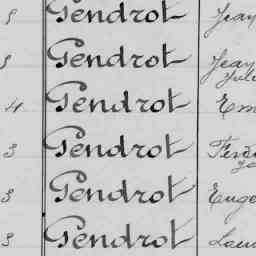 9 Gendrot Jean
9 Gendrot Jean
Jule
4 Gendrot Em
3 Gendrot Ferd
3 Gendrot Euge
3 Gendrot Loui